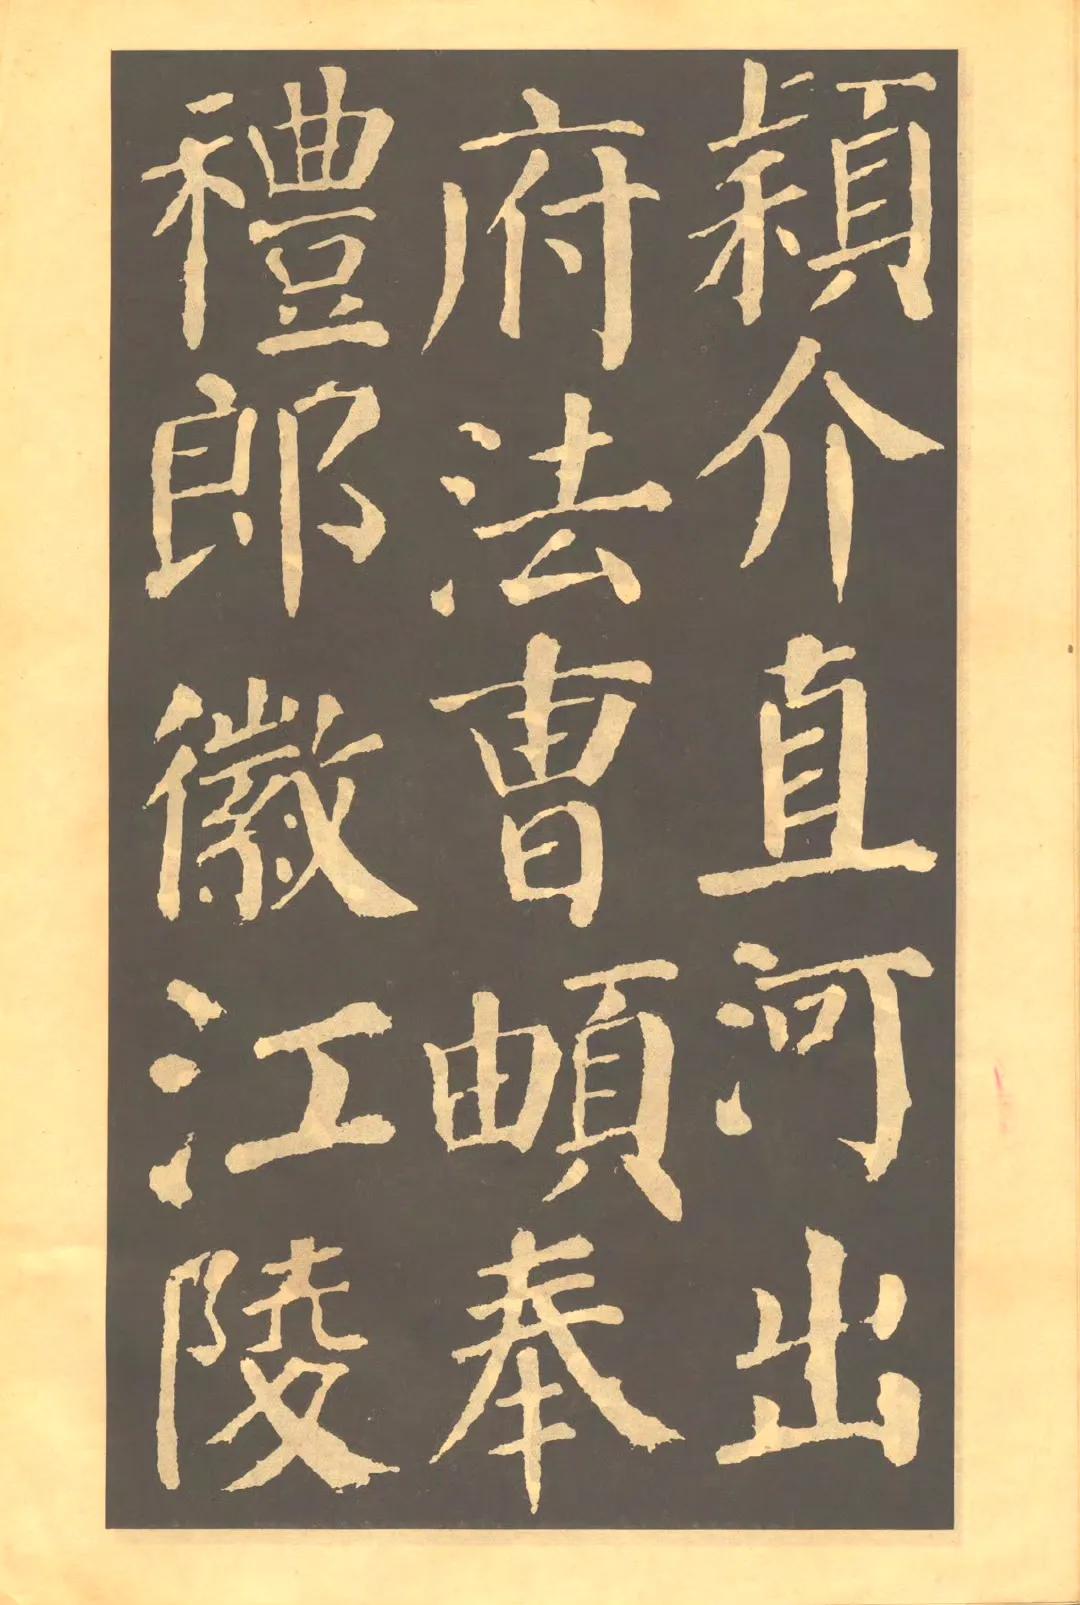 頴介直河出
府法曹頔奉
禮郎徽江陵